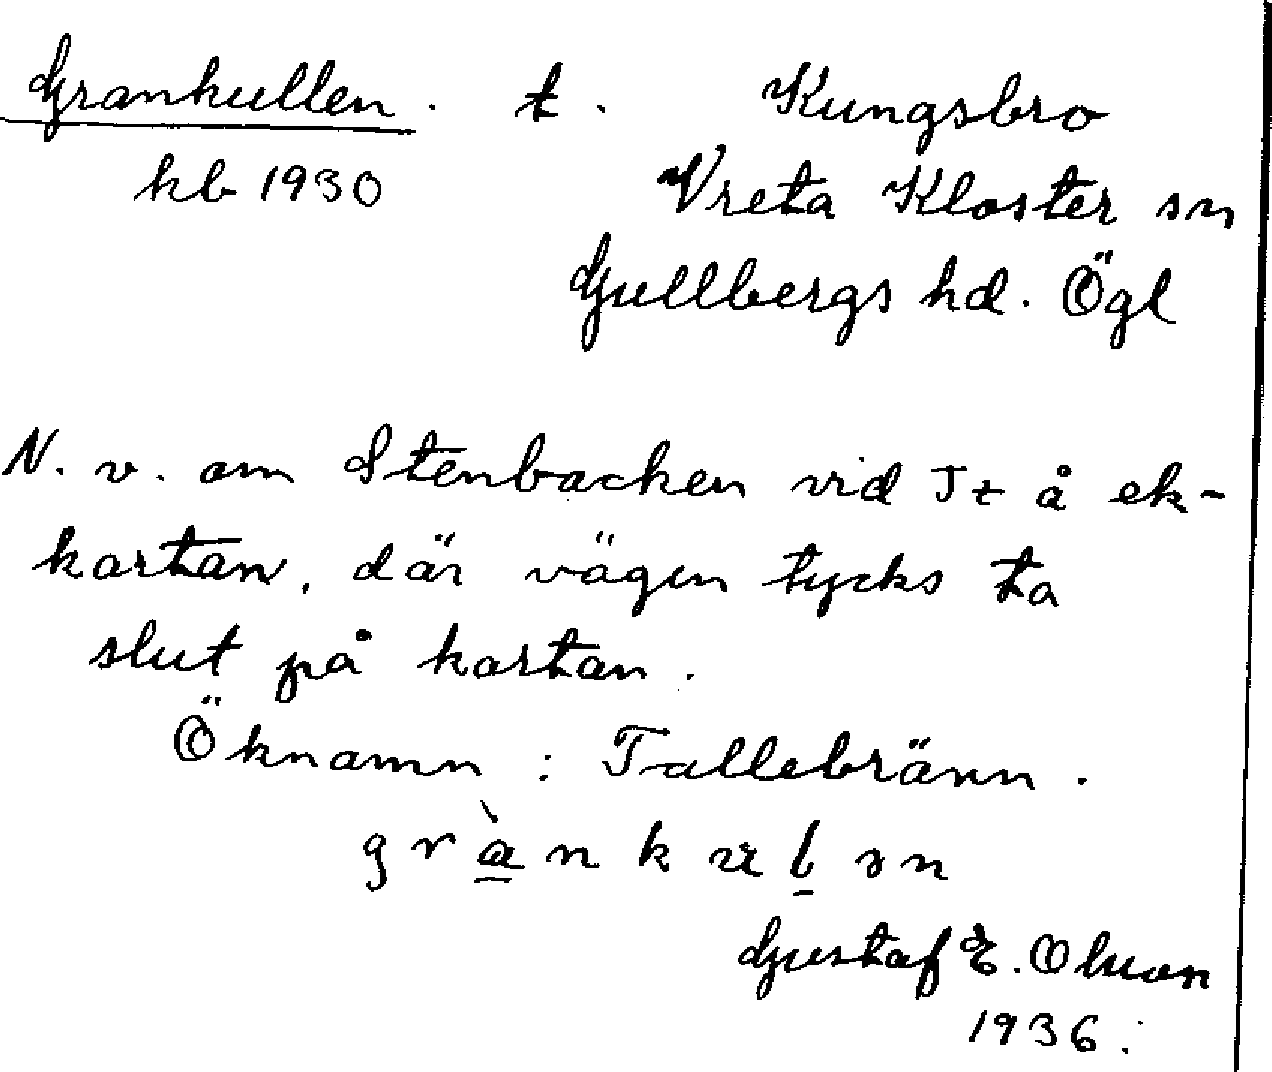 Grankullen. t. Kungsbro
kb 1930 Vreta Kloster sn
Gullbergs hd. Ögl
N. v. om Stenbacken vid Jt å ek-
kartan, där vägen tycks ta
slut på kartan.
Öknamn: Tallebränn.
grànkulən
Gustaf E. Olsson
1936.